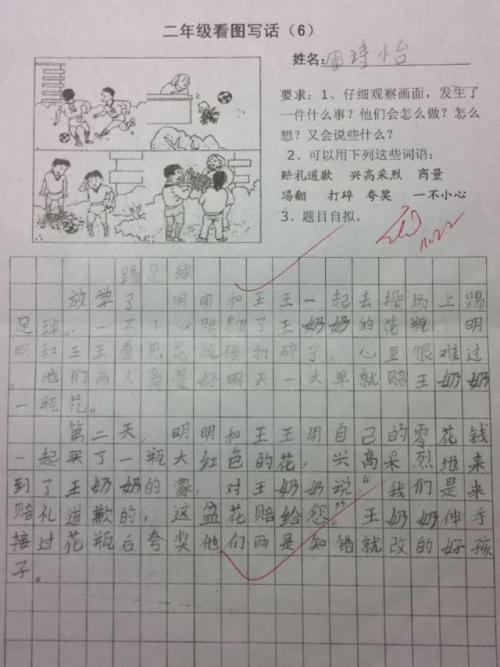 二年级看图写话（6）
姓名：周诗怡
要求：1、仔细观察画面，发生了
一件什么事？他们会怎么做？怎么
想？又会说些什么？
2、可以用下列这些词语：
赔礼道歉 兴高采烈 商量
踢翻 打碎 夸奖 一不小心
3、题目自拟。
踢足球
放学了，明明和王王一起去操场上踢
足球。一不小心踢翻了王奶奶的花瓶，明
明和王王看见花瓶打碎了，心里很难过
。他们两人商量好明天一大早就赔王奶奶
一瓶花。
第二天，明明和王王用自己的零花钱
一起买了一瓶大红色的花，兴高采烈地来
到了王奶奶的家，对王奶奶说：“我们是来
赔礼道歉的，这盆花赔给您。”王奶奶伸手
接过花瓶后夸奖他们两是知错就改的好孩
子。